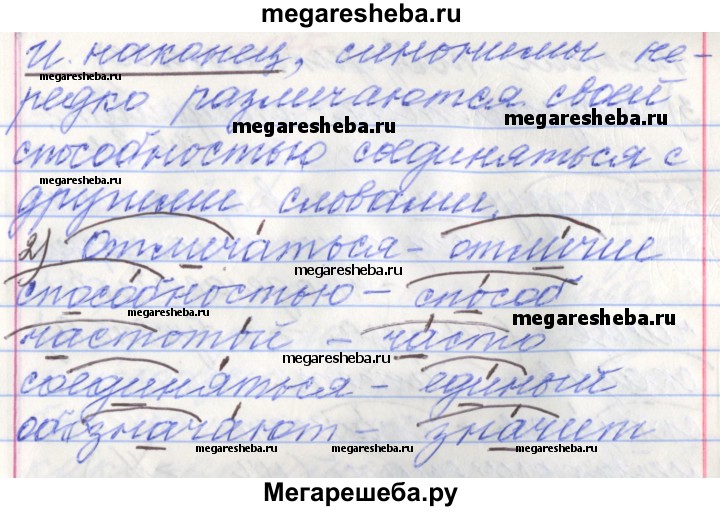 megaresheba.ru
И, наконец, синонимы не-
megaresheba.ru
редко различаются своей
megaresheba.ru
megaresheba.ru
способностью соединяться с
megaresheba.ru
другими словами.
2) Отличаться - отличие
megaresheba.ru
способностью - способ
megaresheba.ru
megaresheba.ru
частотой - часто
megaresheba.ru
соединяться - единый
megaresheba.ru
обозначают - значит
megaresheba.ru megaresheba.ru megaresheba.ru
Мегарешеба.ру